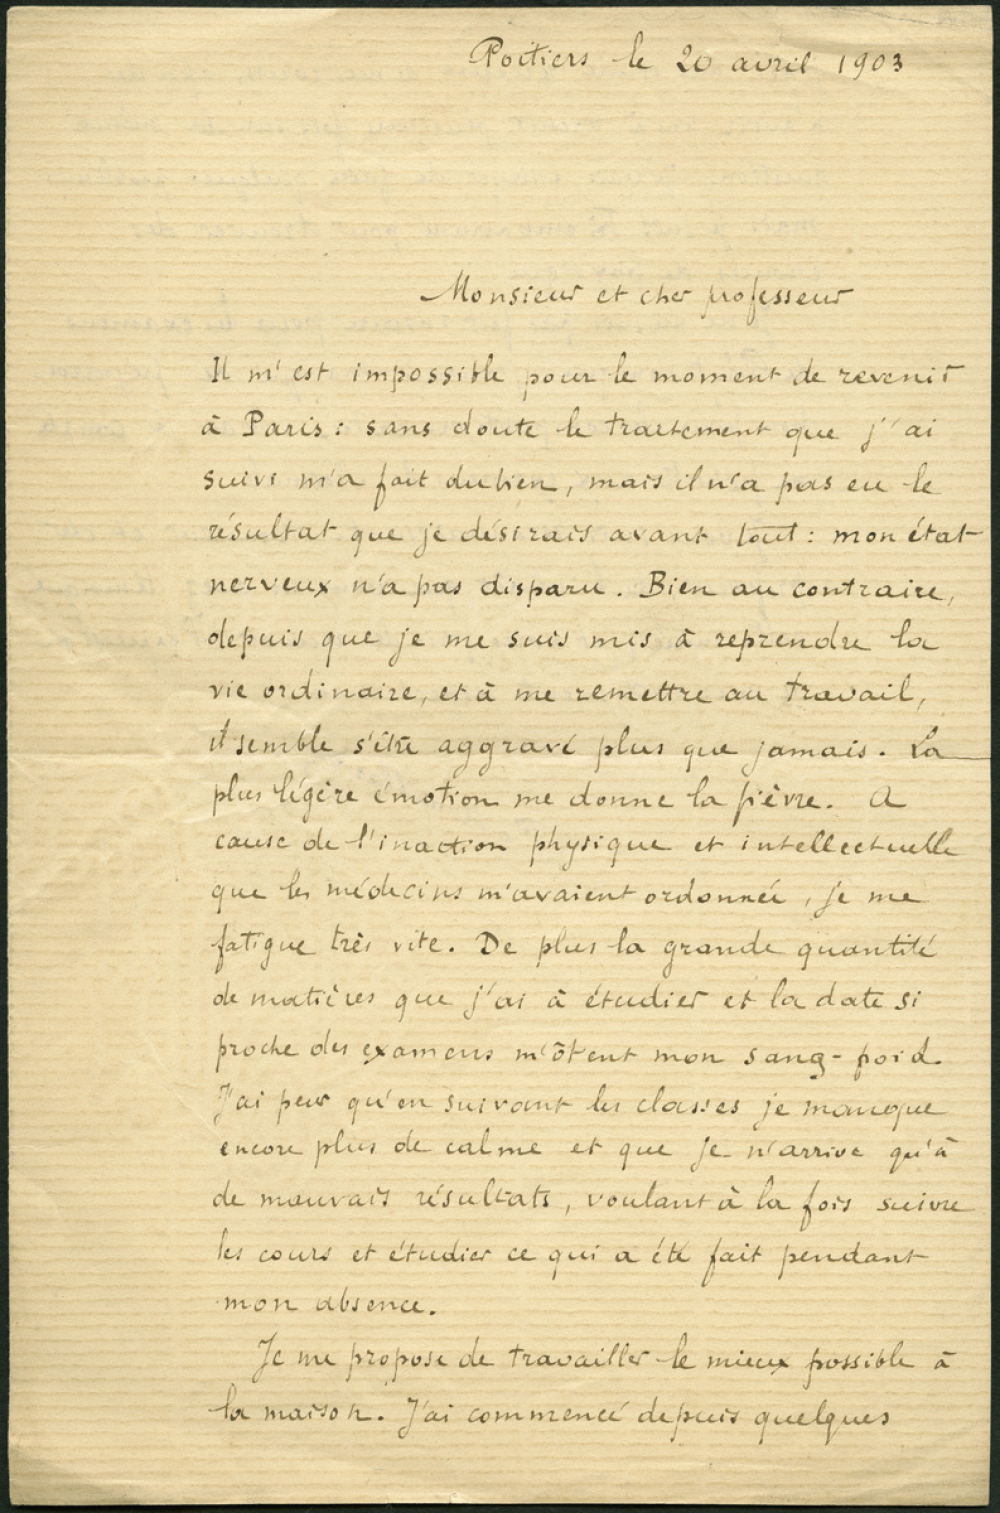 Poitiers le 20 avril 1903
Monsieur et cher professeur
Il m'est impossible pour le moment de revenir
à Paris : sans doute le traitement que j'ai
suivi m'a fait du bien, mais il n'a pas eu le
résultat que je désirais avant tout : mon état
nerveux n'a pas disparu. Bien au contraire,
depuis que je me suis mis à reprendre la
vie ordinaire, et à me remettre au travail,
il semble s'être aggravé plus que jamais. La
plus légère émotion me donne la fièvre. A
cause de l'inaction physique et intellectuelle
que les médecins m'avaient ordonnée, je me
fatigue très vite. De plus la grande quantité
de matières que j'ai à étudier et la date si
proche des examens m'ôtent mon sang-froid.
J'ai peur qu'en suivant les classes je manque
encore plus de calme et que je n'arrive qu'à
de mauvais résultats, voulant à la fois suivre
les cours et étudier ce qui a été fait pendant
mon absence.
Je me propose de travailler le mieux possible à
la maison. J'ai commencé depuis quelques